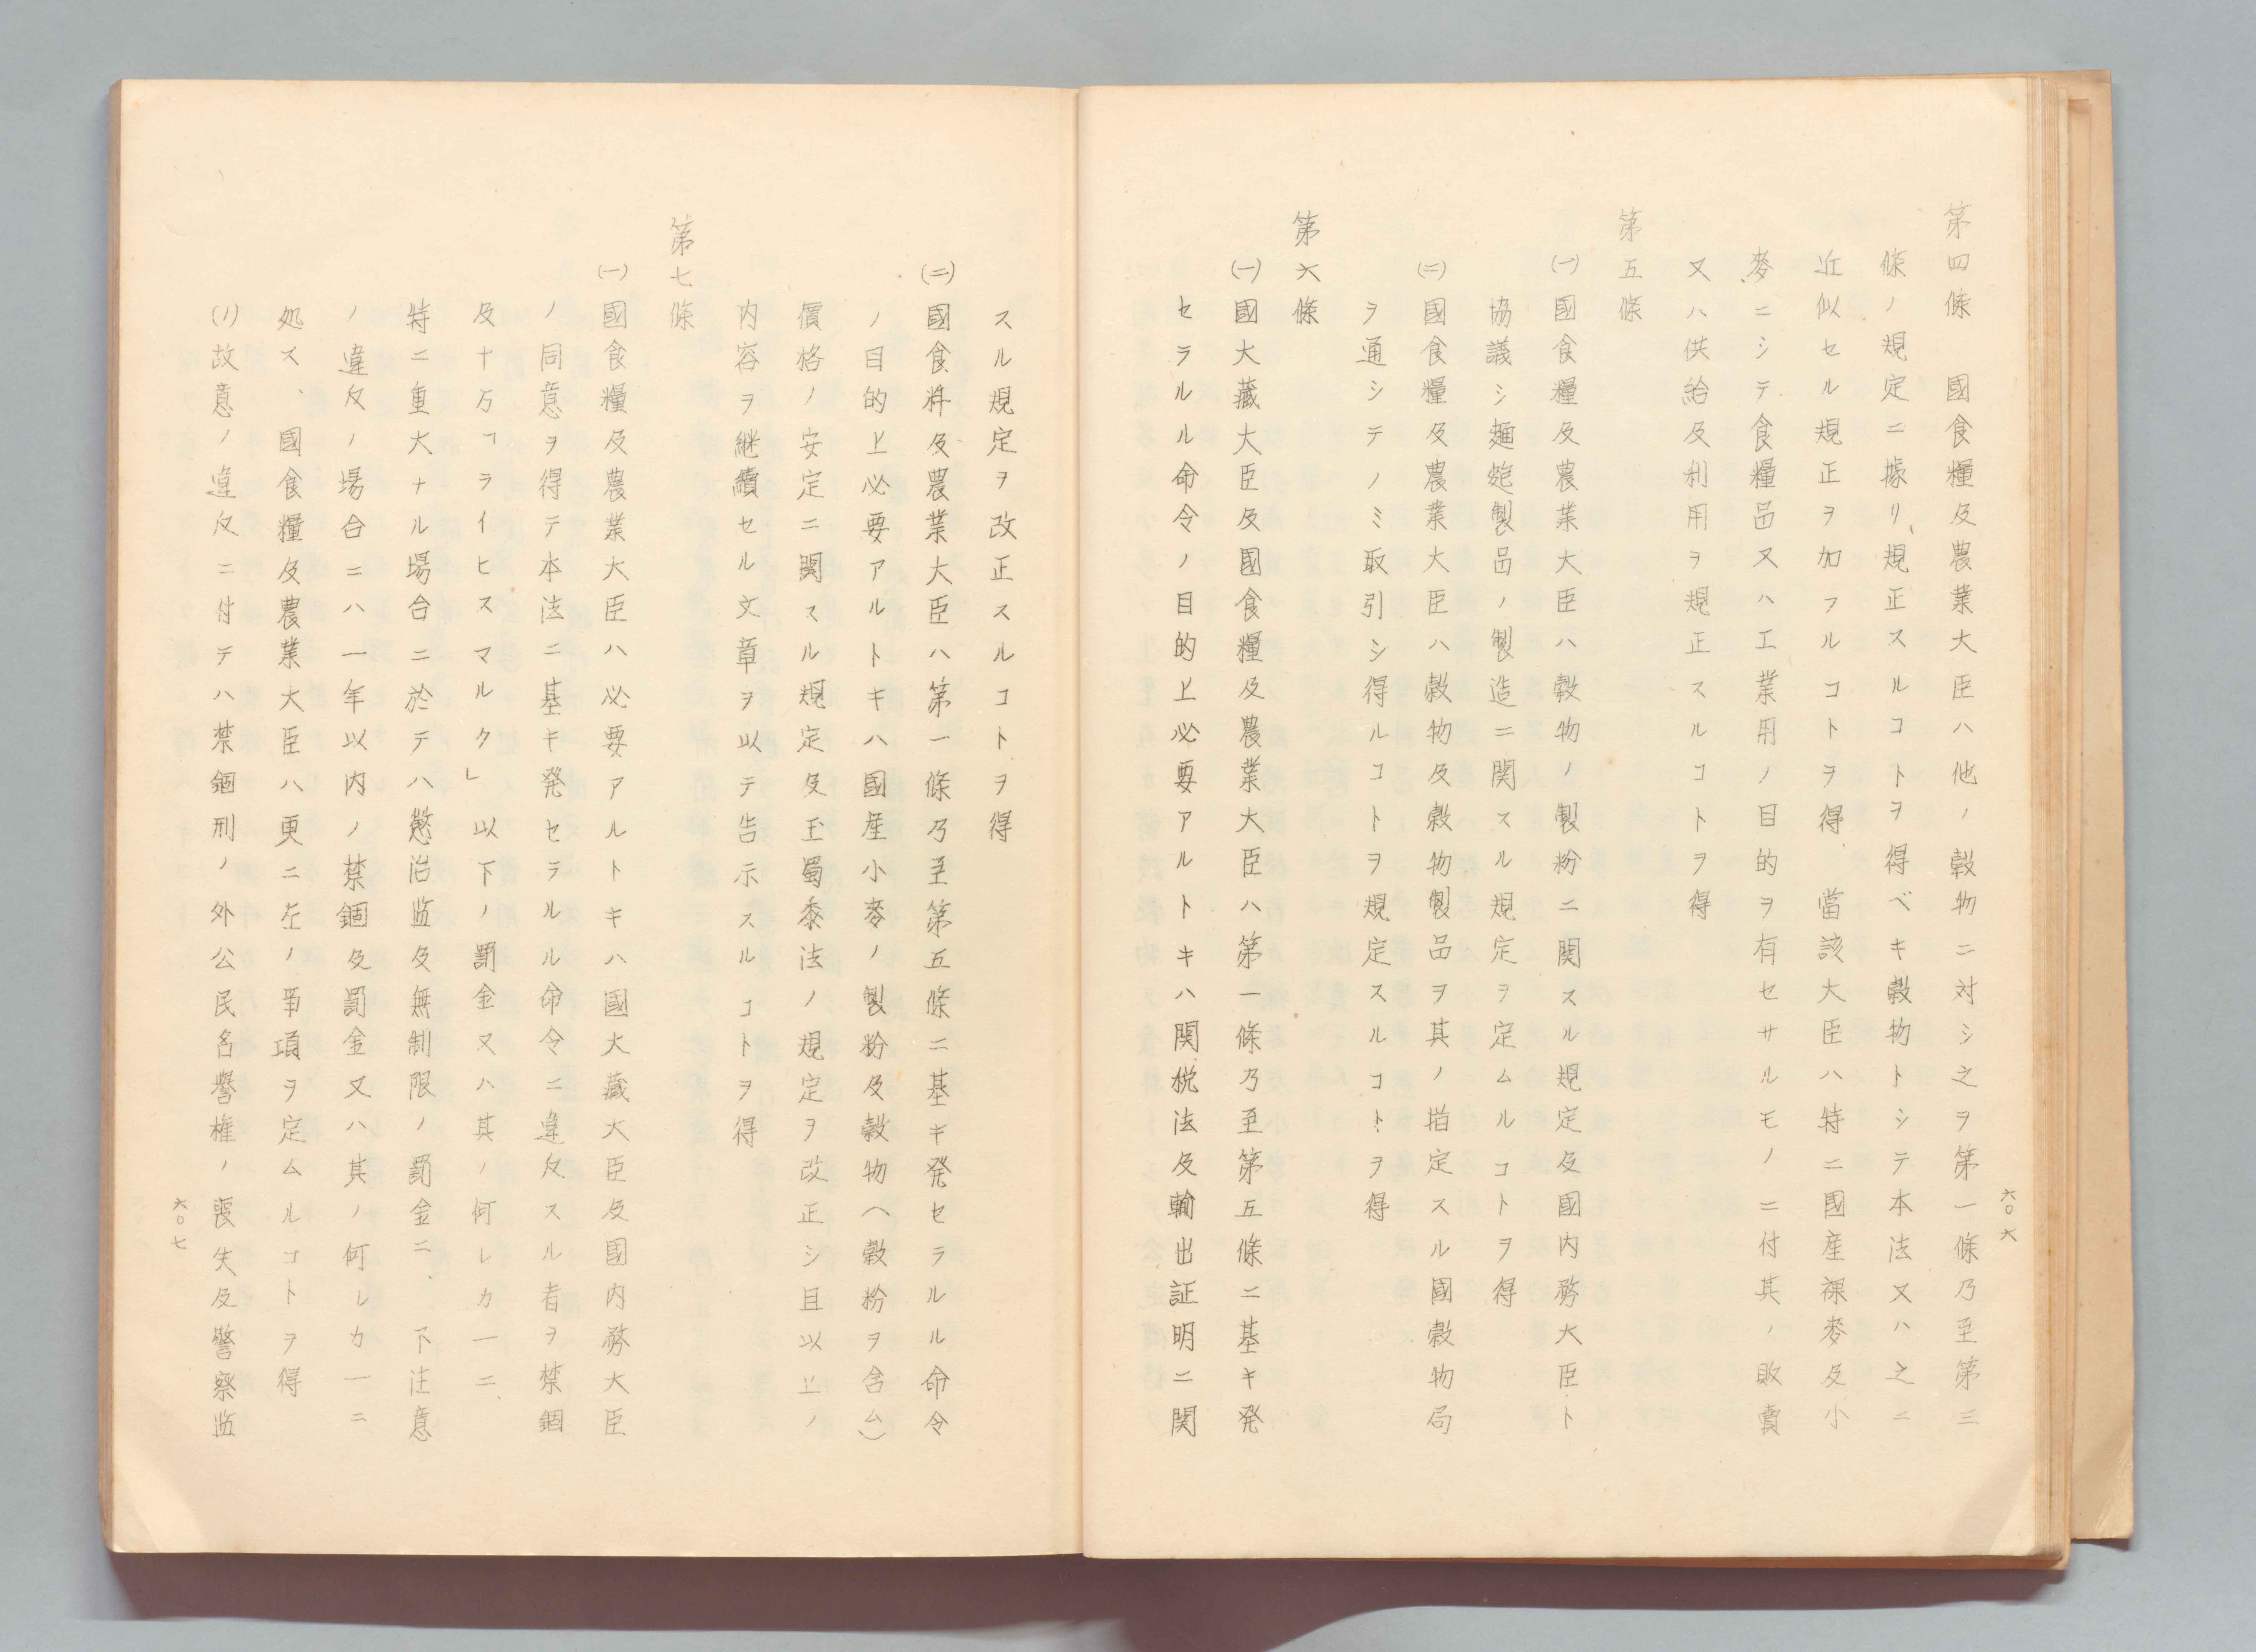 第四條　國食糧及農業大臣ハ他ノ穀物ニ対シ之ヲ第一條乃至第三
條ノ規定ニ據リ、規正スルコトヲ得ベキ穀物トシテ本法又ハ之ニ
近似セル規正ヲ加フルコトヲ得　當該大臣ハ特ニ國産裸麥及小
麥ニシテ食糧品又ハ工業用ノ目的ヲ有セサルモノニ付其ノ販賣
又ハ供給及利用ヲ規正スルコトヲ得
第五條
(一)國食糧及農業大臣ハ穀物ノ製粉ニ関スル規定及國内務大臣ト
協議シ麺麭製品ノ製造ニ関スル規定ヲ定ムルコトヲ得
(二)國食糧及農業大臣ハ穀物及穀物製品ヲ其ノ指定スル國穀物局
ヲ通シテノミ取引シ得ルコトヲ規定スルコトヲ得
第六條
(一)國大藏大臣及國食糧及農業大臣ハ第一條乃至第五條ニ基キ発
セラルル命令ノ目的上必要アルトキハ関税法及輸出証明ニ関
六〇六
スル規定ヲ改正スルコトヲ得
(二)國食料及農業大臣ハ第一條乃至第五條ニ基キ発セラルル命令
ノ目的上必要アルトキハ國産小麥ノ製粉及穀物(穀粉ヲ含ム)
價格ノ安定ニ関スル規定及玉蜀黍法ノ規定ヲ改正シ且以上ノ
内容ヲ継續セル文章ヲ以テ告示スルコトヲ得
第七條
(一)國食糧及農業大臣ハ必要アルトキハ國大藏大臣及國内務大臣
ノ同意ヲ得テ本法ニ基キ発セラルル命令ニ違反スル者ヲ禁錮
及十万「ライヒスマルク」以下ノ罰金又ハ其ノ何レカ一ニ、
特ニ重大ナル場合ニ於テハ懲治監及無制限ノ罰金ニ、下注意
ノ違反ノ場合ニハ一年以内ノ禁錮及罰金又ハ其ノ何レカ一ニ
処ス、國食糧及農業大臣ハ更ニ左ノ事項ヲ定ムルコトヲ得
(ﾉ)故意ノ違反ニ付テハ禁錮刑ノ外公民名譽権ノ喪失及警察監
六〇七